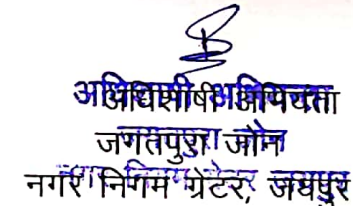 अधिशाषी अभियंता
जगतपुरा जोन
नगर निगम ग्रेटर, जयपुर